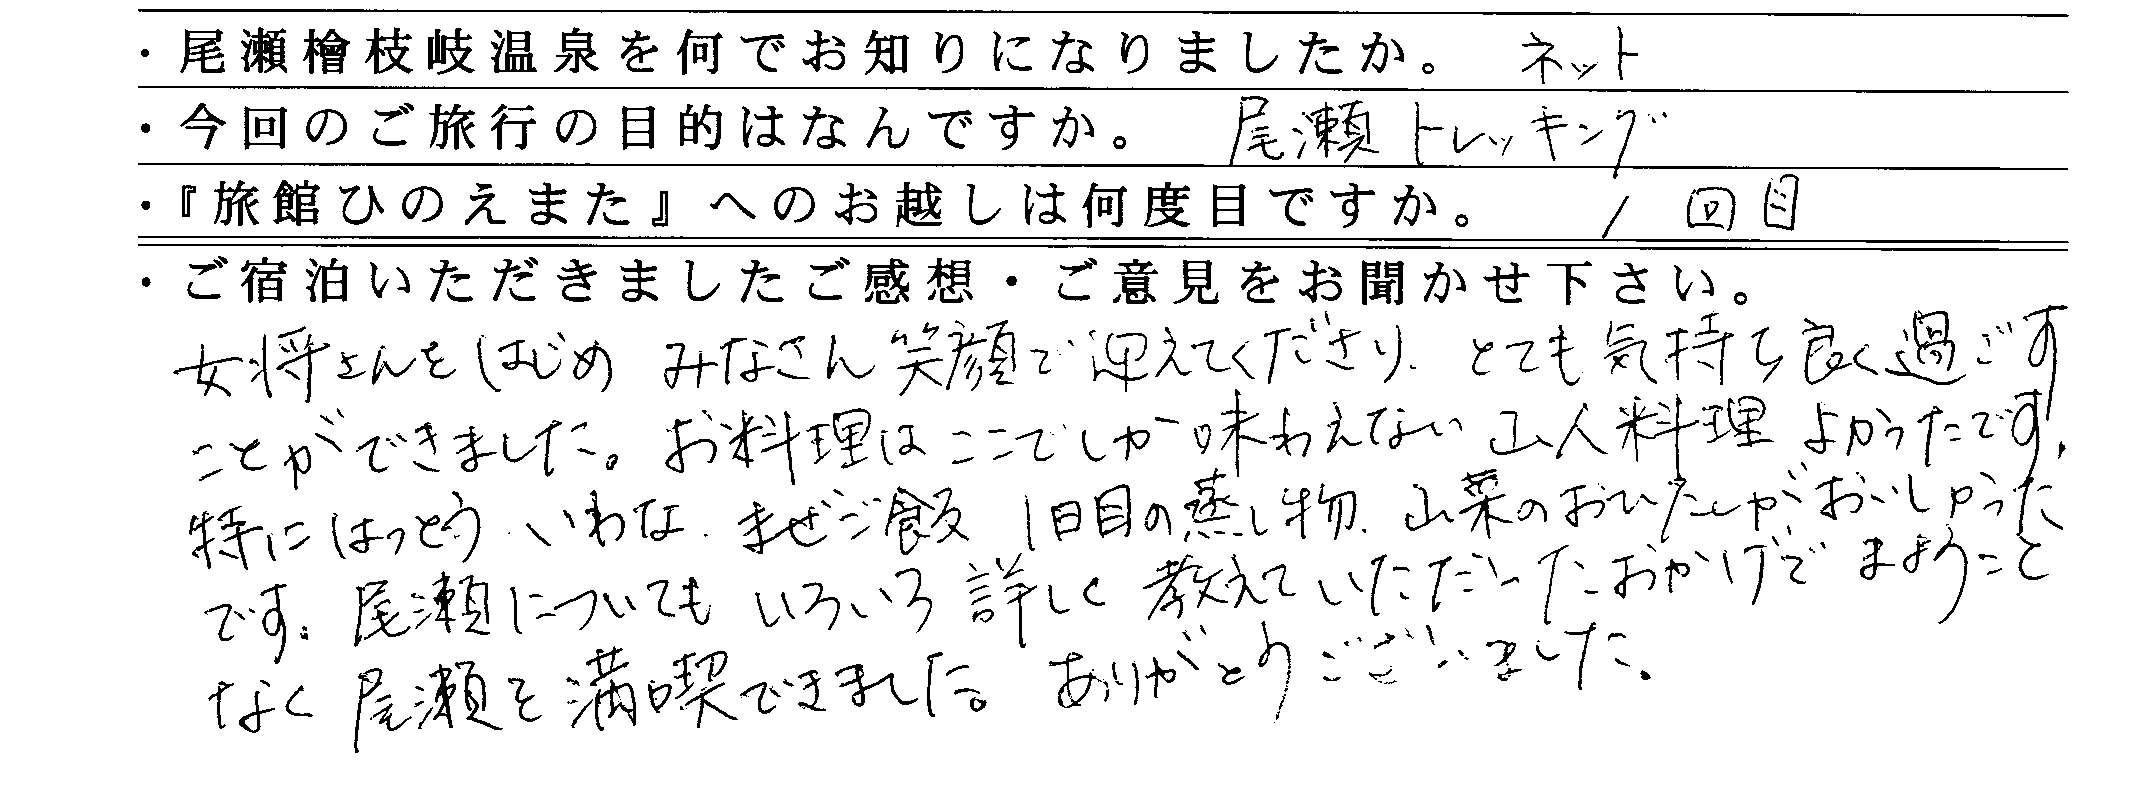 ・尾瀬檜枝岐温泉を何でお知りになりましたか。 ネット
・今回のご旅行の目的はなんですか。 尾瀬トレッキング
・『旅館ひのえまた』へのお越しは何度目ですか。 1回目
・ご宿泊いただきましたご感想・ご意見をお聞かせ下さい。
女将さんをはじめ みなさん笑顔で迎えてくださり、とても気持ち良く過ごす
ことができました。お料理はここでしか味わえない山人料理 よかったです。
特にはっとう、いわな、まぜご飯、1日目の蒸し物、山菜のおひたしがおいしかった
です。尾瀬についてもいろいろ詳しく教えていただいたおかげでまようこと
なく尾瀬を満喫できました。ありがとうございました。